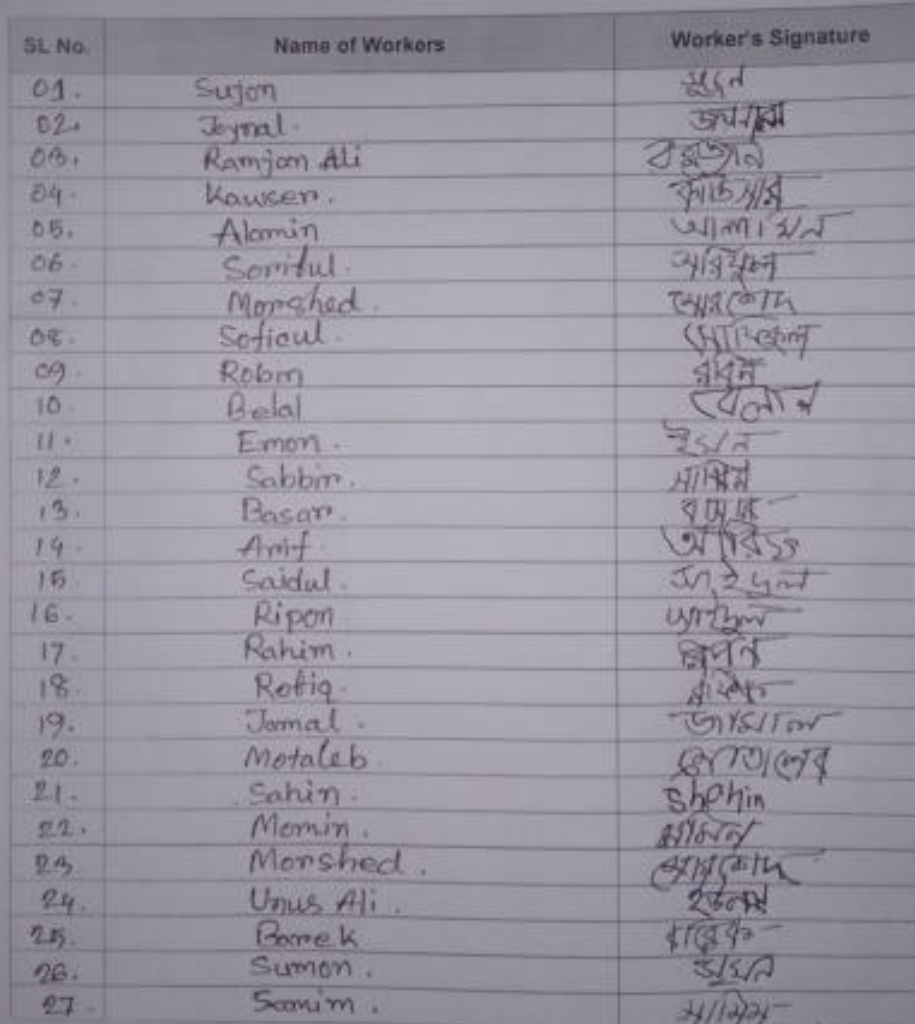 SL No. Name of Workers Worker's Signature
01. Sujon সুজন
02. Joynal. জয়নাল
03. Ramjan Ali রমজান
04. Kawser. কাউসার
05. Alamin আলামিন
06. Soriful. সরিফুল
07. Morshed. মোরশেদ
08. Soficul.
09. Robin রবিন
10 Belal বেলাল
11. Emon. ইমন
12. Sabbir. সাব্বির
13. Basar. বাসার
14. Arif. আরিফ
15 Saidul. সাইদুল
16. Ripon সাইদুল
17. Rahim. রিপন
18. Rofiq. রফিক
19. Jamal. জামাল
20. Motaleb. মোতালেব
21. Sahin. Shahin
22. Momin. মমিন
23 Morshed. মোরশেদ
24. Unus Ali. ইউনুস
25. Barek বারেক
26. Sumon. সুমন
27. Samim. সামিম